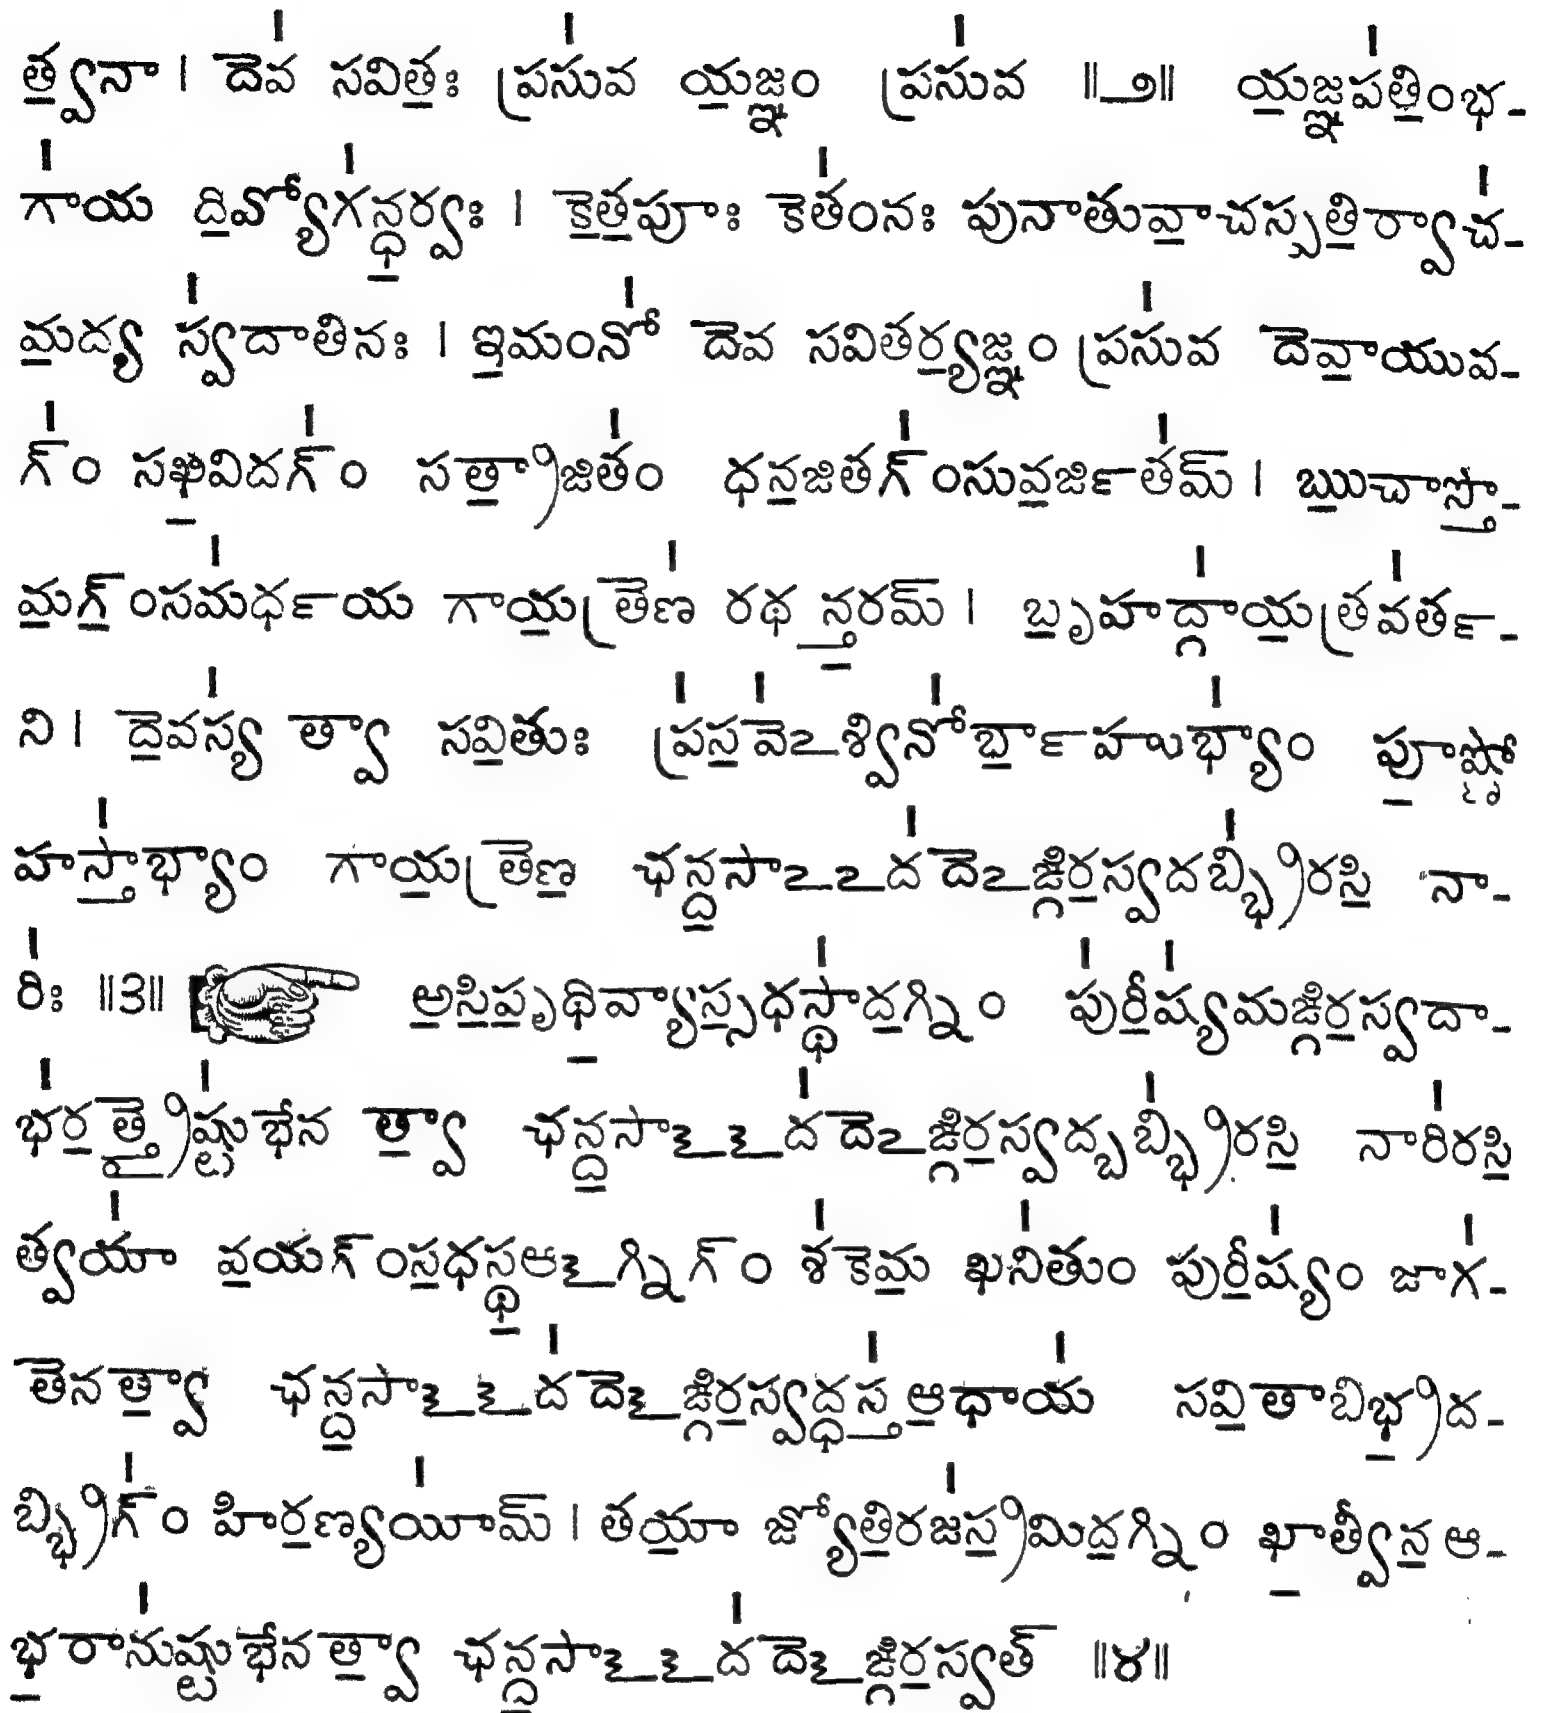 త్వ॒నా । దేవ॑ సవిత॒ః ప్రసు॑వ య॒జ్ఞం ప్రసు॑వ ॥౨॥ య॒జ్ఞప॑తి॒ంభ-
గా॑య ది॒వ్యోగ॑న్ధ॒ర్వః । కే॒త॒పూః కేత॑ంనః పునాతువా॒చస్పతి॒ర్వాచ॑-
మ॒ద్య స్వ॑దాతినః । ఇ॒మంనో॑ దేవ సవితర్య॒జ్ఞం ప్రసు॑వ దేవా॒యువ-
గ్॑ం సఖి॒విదగ్॑ం సత్రా॒జిత॑ం ధన॒జితగ్॑ంసువ॒ర్జిత॑మ్ । ఋ॒చాస్తో॒-
మ॒గ్॒ంసమ॑ర్ధయ గాయ॒త్రేణ॑ రథన్త॒రమ్ । బృ॒హద్గా॑య॒త్రవ॑ర్త-
ని । దే॒వస్య॑ త్వా సవి॒తుః ప్ర॑స॒వే॑ఽశ్వినో॑ర్బా॒హుభ్యా॑ం పూ॒ష్ణో
హస్తా॑భ్యాం గాయ॒త్రేణ॒ ఛన్ద॒సాఽఽద॑దేఽఙ్గిర॒స్వదబ్భ్రి॑రసి॒ నా-
రి॑ః ॥౩॥ అ॒సి॒పృ॒థి॒వ్యాస్స॒ధస్థా॑ద॒గ్నిం పు॑రీ॒ష్య॑మఙ్గిర॒స్వదా-
భ॑ర॒త్రై॒ష్టు॑భేన త్వా॒ ఛన్ద॒సాఽఽద॑దేఽఙ్గిర॒స్వద్బబ్భ్రి॑రసి॒ నారి॑రసి॒
త్వయా॑ వ॒యగ్ంస॒ధస్థ॒ఆఽగ్నిగ్ం శ॑కేమ॒ ఖని॑తుం పురీ॒ష్య॑ం జాగ॑-
తేనత్వా॒ ఛన్ద॒సాఽఽద॑దేఽఙ్గిర॒స్వద్ధస్త॑ఆ॒ధాయ॑ సవి॒తాబిభ్రి॒ద-
బ్భ్రిగ్॑ం హిర॒ణ్యయీ॑మ్ । తయా॒ జ్యోతి॒రజ॑స్రి॒మిద॒గ్నిం ఖా॒త్వీన॒ ఆ-
భ॒రాను॑ష్టుభేనత్వా॒ ఛన్ద॒సాఽఽద॑దేఽఙ్గిర॒స్వత్ ॥౪॥